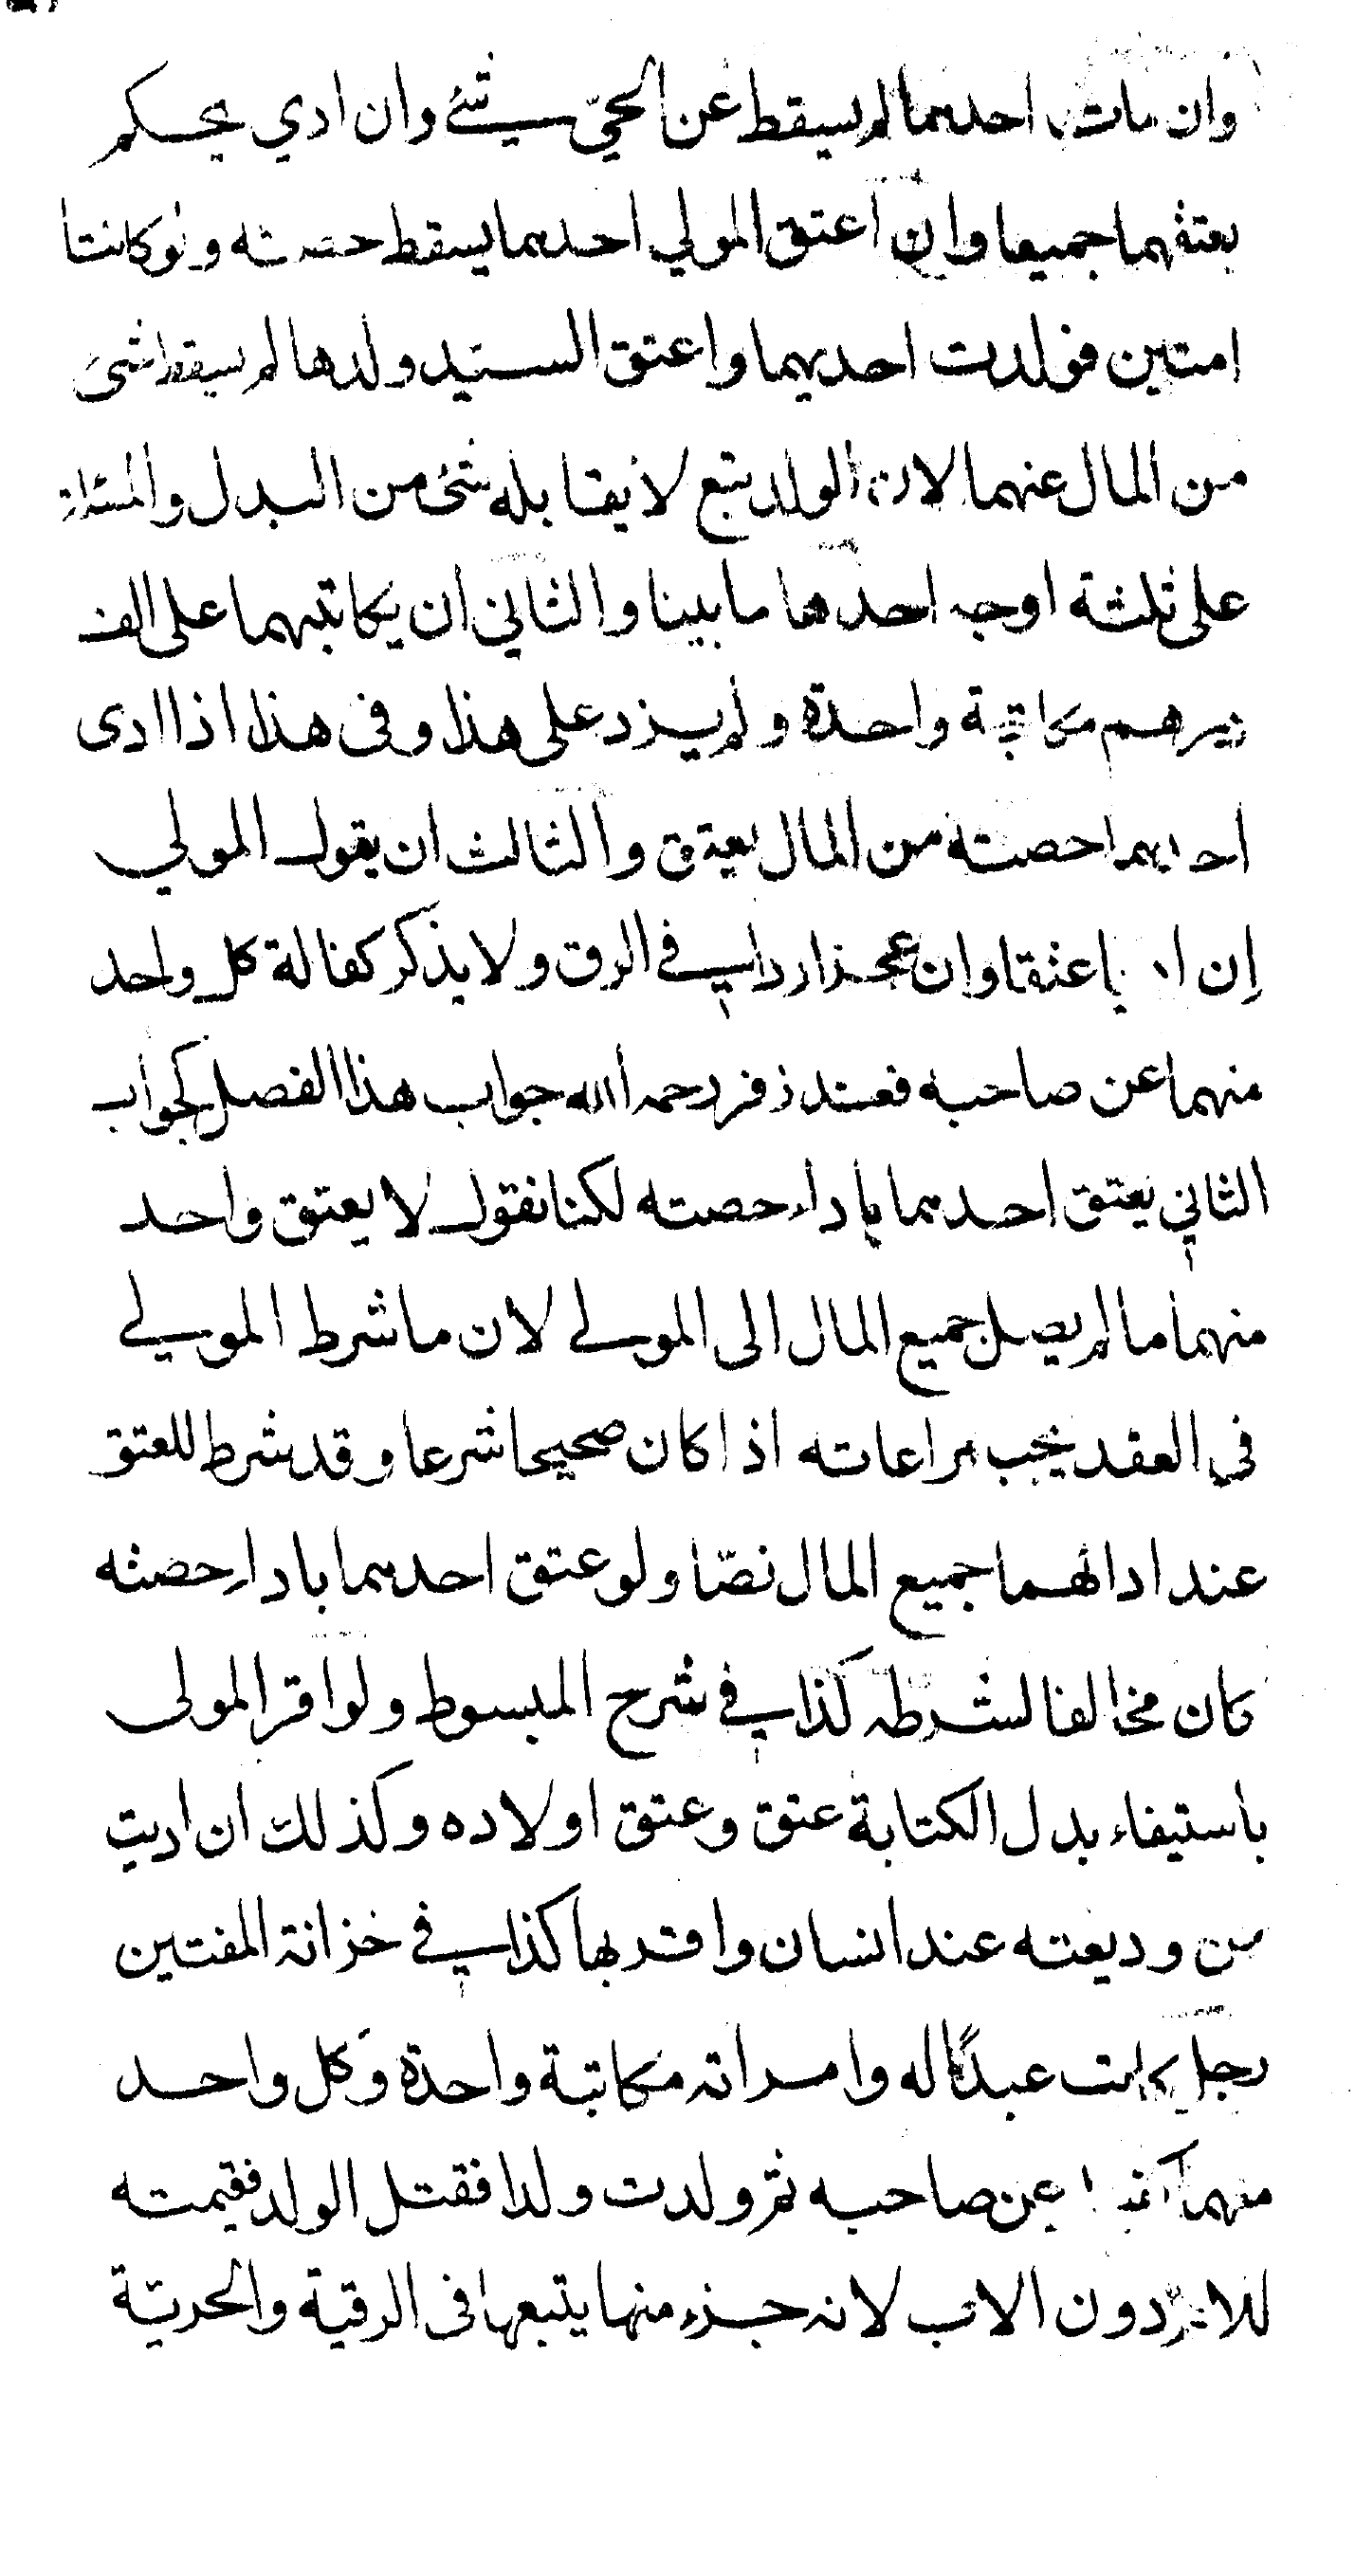 وان مات احدهما لم يسقط عن الحيّ شيئ وان ادي يحكم
بعتقهما جميعا وان اعتق المولي احدهما يسقط حصته ولو كانتا
امتين فولدت احديهما واعتق السيّد ولدها لم يسقط شئ
من المال عنهما لان الولد تبع لا يقابله شئ من البدل والمسئلة
على ثلثة اوجه احدها ما بينا والثاني ان يكاتبهما على الف
درهم مكاتبة واحدة ولم يزد على هذا وفى هذا اذا ادى
احديهما حصته من المال يعتق والثالث ان يقول المولي
إن اديا عتقا وان عجزا ردا في الرق ولا يذكر كفالة كل واحد
منهما عن صاحبه فعند زفر رحمه الله جواب هذا الفصل كجواب
الثاني يعتق احدهما باداء حصته لكنا نقول لا يعتق واحد
منهما ما لم يصل جميع المال الى المولي لان ما شرط المولي
في العقد يجب مراعاته اذا كان صحيحا شرعا وقد شرط للعتق
عند ادائهما جميع المال نصّا ولو عتق احدهما باداء حصته
كان مخالفا لشرطه كذا في شرح المبسوط ولو اقر المولى
باستيفاء بدل الكتابة عتق وعتق اولاده وكذلك ان اديت
من وديعته عند انسان واقر بها كذا في خزانة المفتين
رجل كاتب عبدًا له وامراته مكاتبة واحدة وكل واحد
منهما كفيل عن صاحبه ثم ولدت ولدا فقتل الولد فقيمته
للام دون الاب لانه جزء منها يتبعها فى الرقية والحريّة